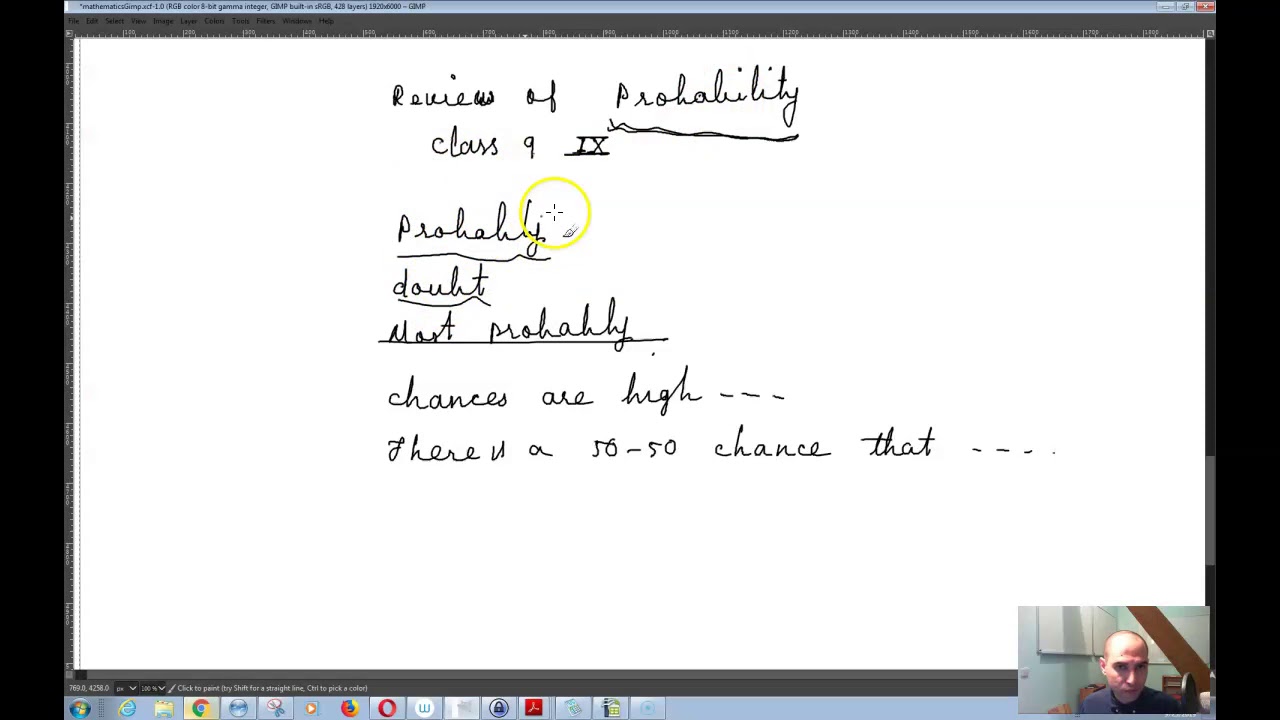 *mathematicsGimp.xcf-1.0 (RGB color 8-bit gamma integer, GIMP built-in sRGB, 428 layers) 1920x6000 – GIMP
File Edit Select View Image Layer Colors Tools Filters Windows Help
100 200 300 400 500 600 700 800 900 1000 1100 1200 1300 1400 1500 1600 1700 1800
Review of Probability
class 9 IX
Probably
doubt
Most probably
chances are high ---
There is a 50-50 chance that ----
769.0, 4258.0 px 100 % Click to paint (try Shift for a straight line, Ctrl to pick a color)